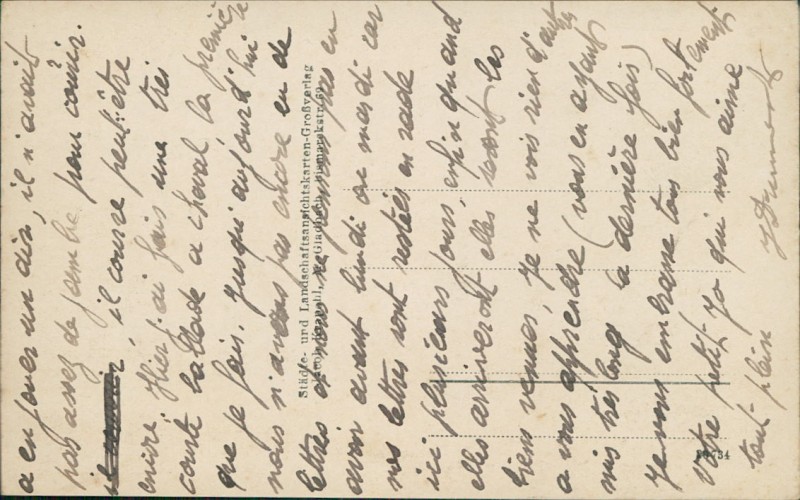 a en jouer un air, il n'avait
pas assez de jambe pour courir.
il courre peut-être
encore. Hier j'ai fais une très
courte ballade a cheval la première
que je fais. Jusqu'aujourd'hui
nous n'avons pas encore eu de
lettres et nous ne en
avoir avant lundi ou mardi car
nos lettres sont restées en rade
ici plusieurs jours, enfin quand
elles arriveront elles seront les
biens venues, je ne vois rien d'autres
a vous apprendre (vous en ayant
mis très long la dernière fois)
Je vous embrasse tous bien fortement
Votre petit Jo qui vous aime
tout plein
Städte- und Landschaftsansichtskarten-Großverlag
M. Gladbach, Bismarckstr.